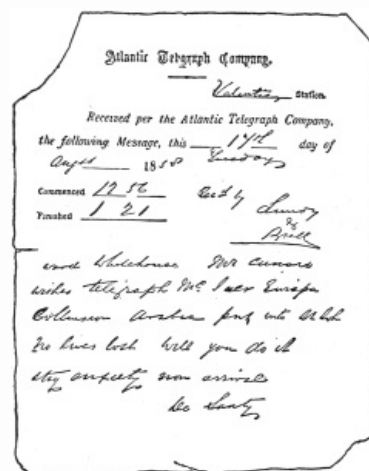 Atlantic Telegraph Company.
Valentia Station.
Received per the Atlantic Telegraph Company,
the following Message, this 17th day of
Augst 1858 Tuesday
Commenced 12 56 Recd by
Finished 1 21 Lundy
&
Bull
word Whitehouse Mr Cunard
wishes telegraph Mc Iver Europa
Collision Arabia put into St Johns
No lives lost Will you do it
stay anxiety non arrival
De Sauty